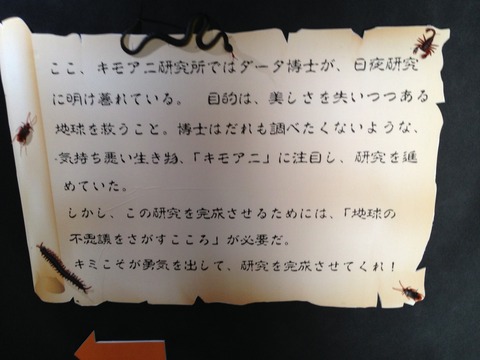 ここ、キモアニ研究所ではダータ博士が、日夜研究
に明け暮れている。　目的は、美しさを失いつつある
地球を救うこと。博士はだれも調べたくないような、
気持ち悪い生き物、「キモアニ」に注目し、研究を進
めていた。
しかし、この研究を完成させるためには、「地球の
不思議をさがすこころ」が必要だ。
キミこそが勇気を出して、研究を完成させてくれ！